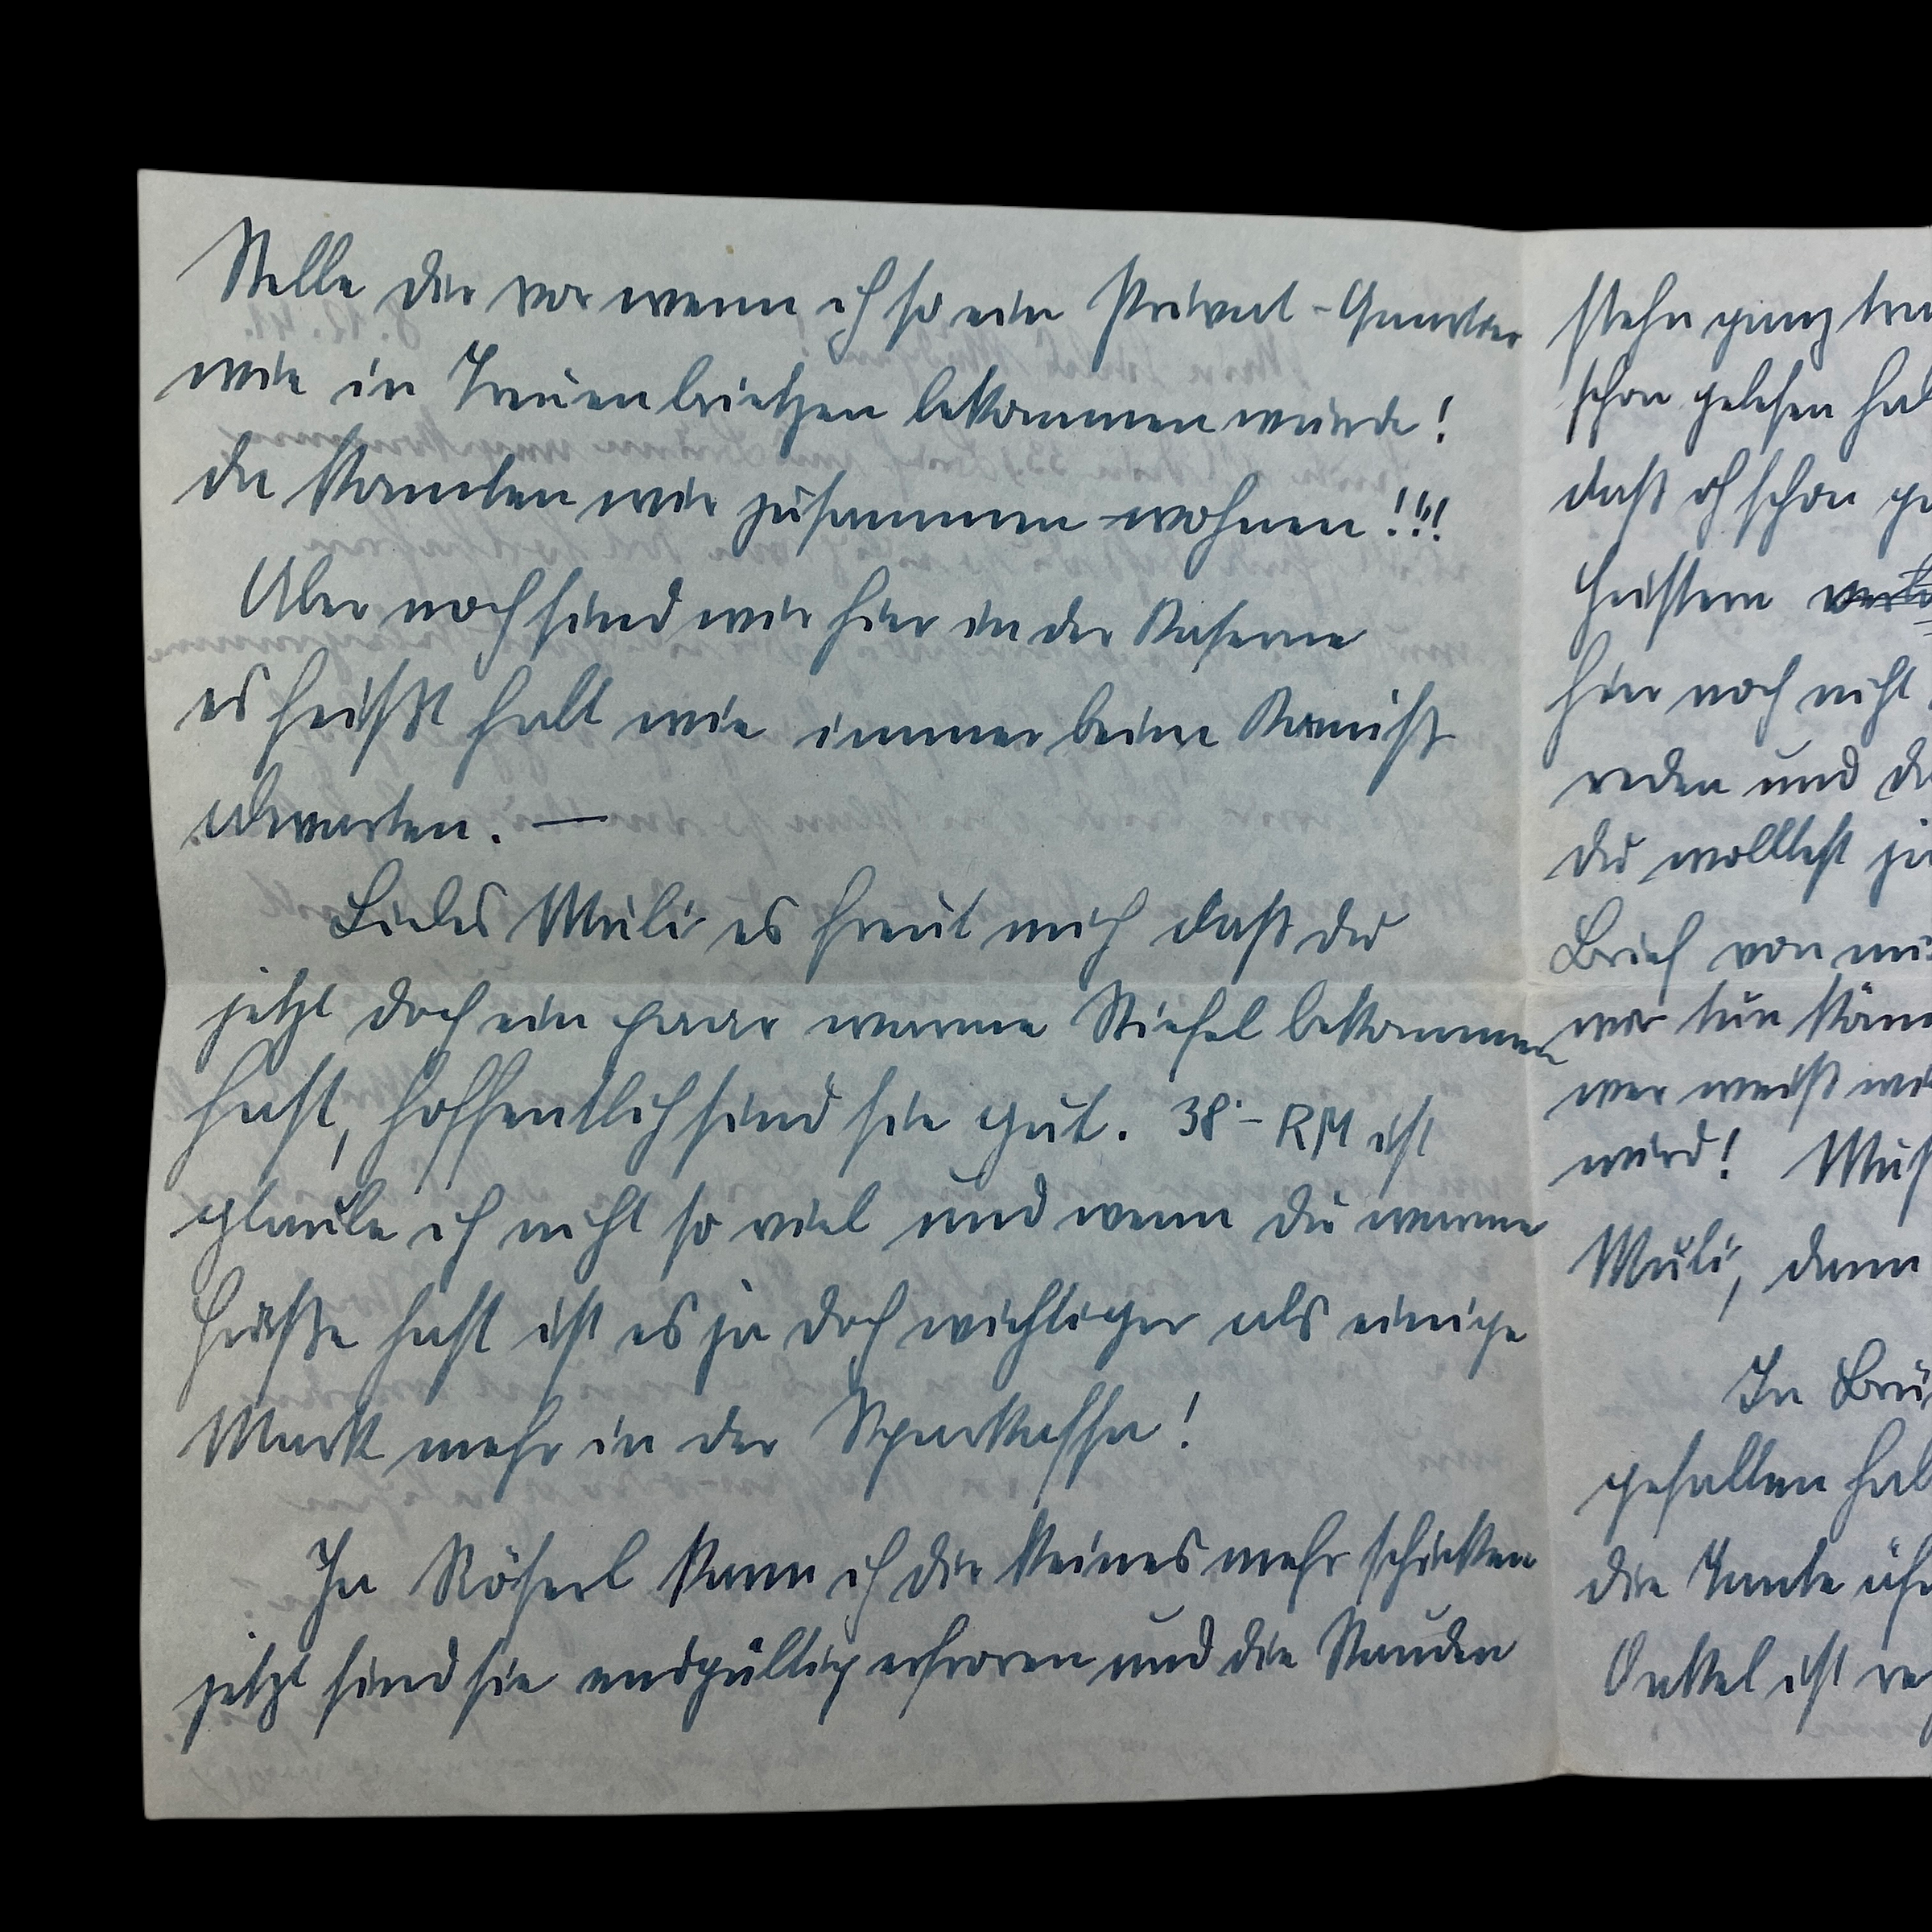 Stelle dir vor wenn ich so ein Privat-Quartier
wie in Treuenbrietzen bekommen würde!
da könnten wir zusammen wohnen!!!
Aber noch sind wir hier in der Kaserne
es heißt halt wie immer beim Komiß
abwarten. —
Liebes Muli es freut mich daß du
jetzt doch ein paar warme Stiefel bekommen
hast, hoffentlich sind sie gut. 38.- RM ist
glaube ich nicht so viel und wenn du warme
Füße hast ist es ja doch wichtiger als einige
Mark mehr in der Sparkasse!
Ja Röserl kann ich dir keines mehr schicken
jetzt sind sie endgültig erfroren und die Stauden
stehn ganz
schon gelesen
daß ich schon
hier noch nicht
reden und
du wolltest
Brief von
wir tun
wer weiß
wird!
Muli, dann
In
gefallen
die Tante
Onkel ist